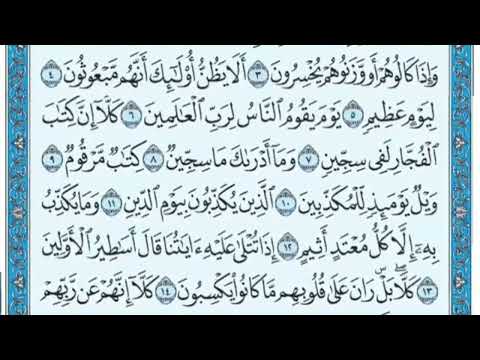 وَإِذَا كَالُوهُمْ أَو وَّزَنُوهُمْ يُخْسِرُونَ ٣ أَلَا يَظُنُّ أُوْلَٰٓئِكَ أَنَّهُم مَّبْعُوثُونَ ٤
لِيَوْمٍ عَظِيمٍ ٥ يَوْمَ يَقُومُ النَّاسُ لِرَبِّ الْعَٰلَمِينَ ٦ كَلَّآ إِنَّ كِتَٰبَ
الْفُجَّارِ لَفِى سِجِّينٍ ٧ وَمَآ أَدْرَىٰكَ مَا سِجِّينٌ ٨ كِتَٰبٌ مَّرْقُومٌ ٩
وَيْلٌ يَوْمَئِذٍ لِّلْمُكَذِّبِينَ ١٠ الَّذِينَ يُكَذِّبُونَ بِيَوْمِ الدِّينِ ١١ وَمَا يُكَذِّبُ
بِهِۦٓ إِلَّا كُلُّ مُعْتَدٍ أَثِيمٍ ١٢ إِذَا تُتْلَىٰ عَلَيْهِ ءَايَٰتُنَا قَالَ أَسَٰطِيرُ الْأَوَّلِينَ
١٣ كَلَّا بَلْ رَانَ عَلَىٰ قُلُوبِهِم مَّا كَانُوا۟ يَكْسِبُونَ ١٤ كَلَّآ إِنَّهُمْ عَن رَّبِّهِمْ